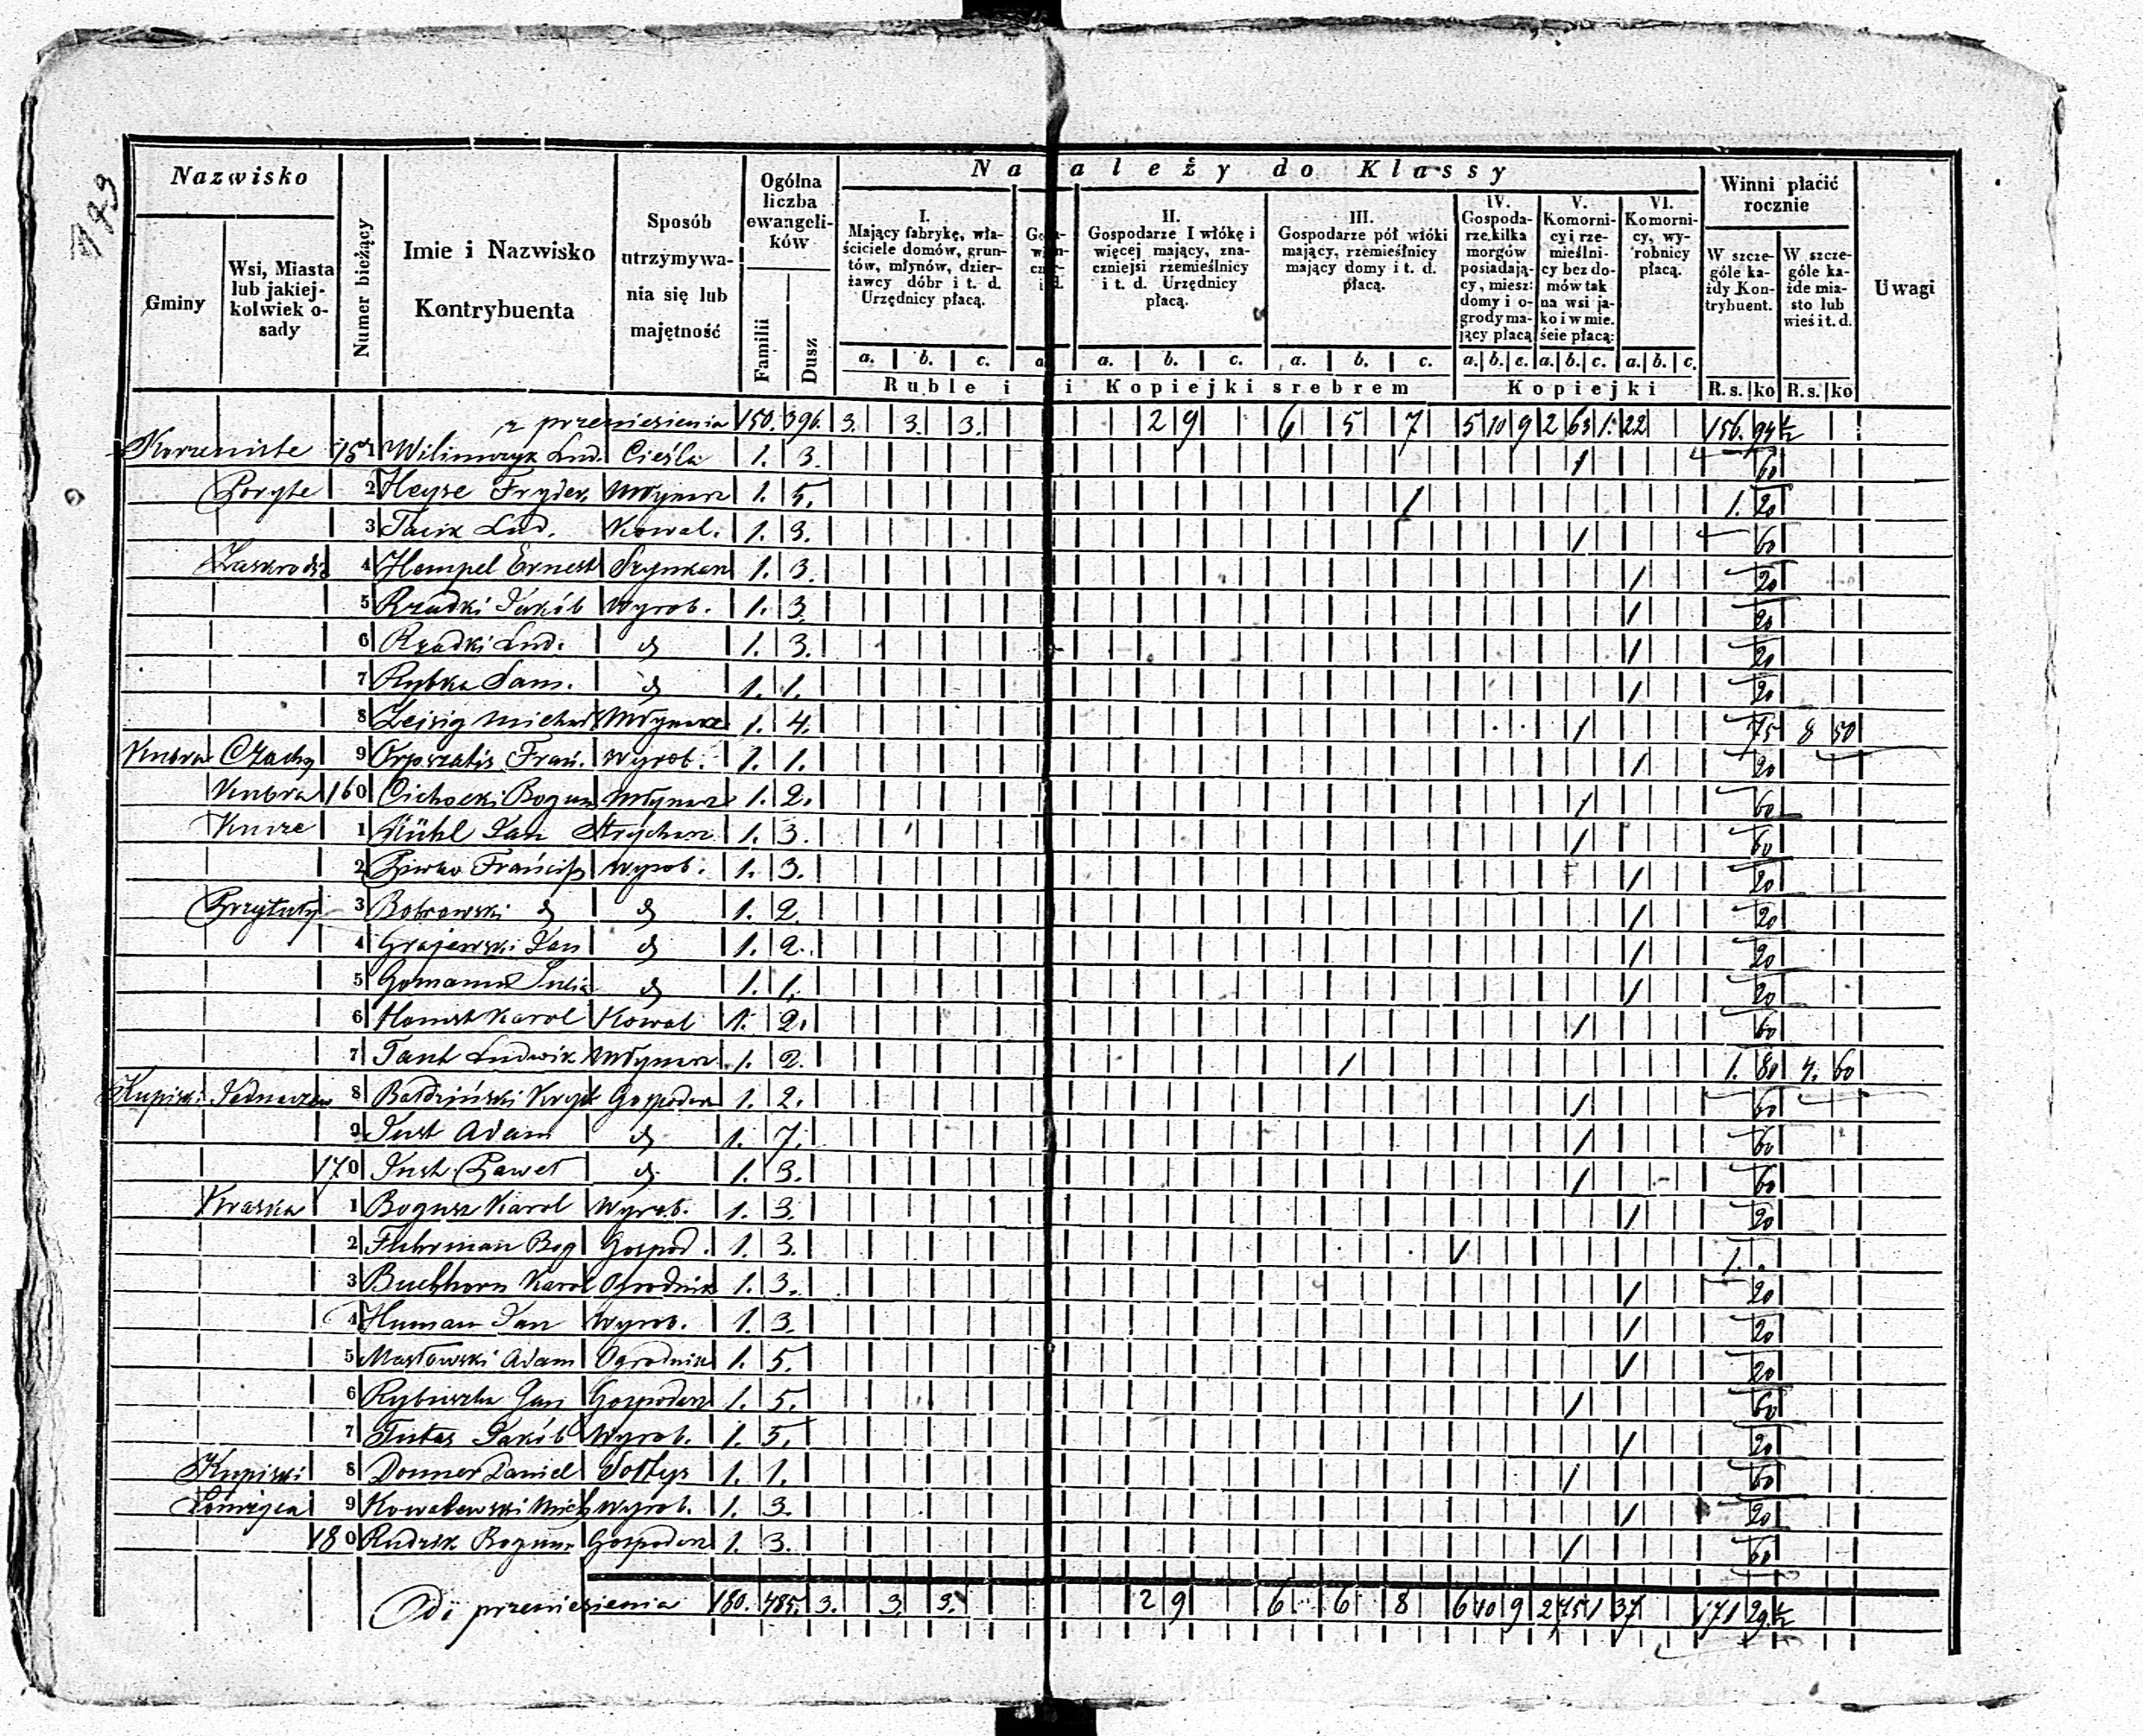 773
Nazwisko
Gminy
Wsi, Miasta lub jakiej-kolwiek o-sady
Numer bieżący
Imie i Nazwisko Kontrybuenta
Sposób utrzymywa-nia się lub majętność
Ogólna liczba ewangeli-ków
Familii
Dusz
Na ależy do Klassy
I. Mający fabrykę, wła-ściciele domów, grun-tów, młynów, dzier-żawcy dóbr i t. d. Urzędnicy płacą.
II. Gospodarze I włókę i więcej mający, zna-czniejsi rzemieślnicy i t. d. Urzędnicy płacą.
III. Gospodarze pół włóki mający, rzemieślnicy mający domy i t. d. płacą.
IV. Gospoda-rze kilka morgów posiadają-cy, miesz: domy i o-grody ma-jący płacą
V. Komorni-cy i rze-mieślni-cy bez do-mów tak na wsi ja-ko i w mie-ście płacą:
VI. Komorni-cy, wy-robnicy płacą.
Winni płacić rocznie
W szcze-góle ka-żdy Kon-trybuent.
W szcze-góle ka-żde mia-sto lub wieś i t. d.
Uwagi
a. b. c. a. a. b. c. a. b. c. a. b. c. a. b. c. a. b. c.
Ruble i i Kopiejki srebrem Kopiejki R.s. ko R.s. ko
z przeniesienia 150. 396. 3. 3. 3. 2 9 6 5 7 5 10 9 2 63 1. 22 156. 94½
Korzeniste 151 Wilimczyk Lud. Cieśla 1. 3. 1 60
Poryte 2 Heyse Fryder. Młynarz 1. 5. 1 1. 20
3 Tacik Lud. Kowal. 1. 3. 1 60
4 Hempel Ernest Szynkarz 1. 3. 1 20
5 Rzadki Jakób Wyrob. 1. 3. 1 20
6 Rzadki Lud. d 1. 3. 1 20
7 Rybka Sam. d 1. 1. 1 20
8 Zeisig Michał Młynarz 1. 4. 1 75 8 50
Kubra Czachy 9 Frań. Wyrob. 1. 1. 1 20
Kubra 160 Cichocki Bogum Młynarz 1. 2. 1 60
1 Kühl Jan Strycharz 1. 3. 1 60
2 Piwko Francisz Wyrob. 1. 3. 1 20
Przytuły 3 Bobrowski d d 1. 2. 1 20
4 Grajewski Jan d 1. 2. 1 20
5 d 1. 1. 1 20
6 Karol Kowal 1. 2. 1 60
7 Ludwik Młynarz 1. 2. 1 1. 80 4. 60
Kupiski Jednaczew 8 Gospodarz 1. 2. 1 60
9 Just Adam d 1. 7. 1 60
170 Just Paweł d 1. 3. 1 60
Kraska 1 Bogusz Karol Wyrob. 1. 3. 1 20
2 Fuhrman Bog Gospod. 1. 3. 1 1. .
3 Buchhorn Karol Ogrodnik 1. 3. 1 20
4 Human Jan Wyrob. 1. 3. 1 20
5 Masłowski Adam Ogrodnik 1. 5. 1 20
6 Jan Gospodarz 1. 5. 1 60
7 Jakób Wyrob. 1. 5. 1 20
Kupiski 8 Donner Daniel Sołtys 1. 1. 1 60
Łomżyca 9 Kowalewski Mich Wyrob. 1. 3. 1 20
180 Rudzik Bogum Gospodarz 1. 3. 1 60
Do przeniesienia 180. 485. 3. 3. 3. 2 9 6 6 8 6 10 9 2 75 1 37 171 29½